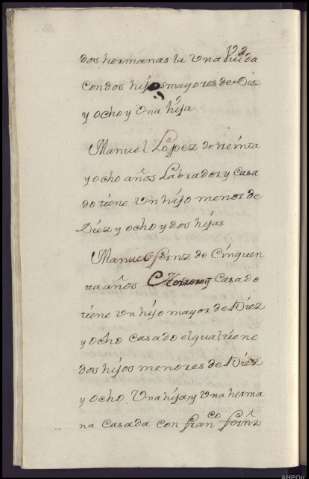 dos hermanas la Una viuda
con dos hijos mayores de Diez
y ocho y Una hija
Manuel Lopez de treinta
y ocho años Labrador y Casa
do tiene Un hijo menor de
Diez y ocho y dos hijas
Manuel frnz de Cinquen
ta años Casado
tiene Un hijo mayor de Diez
y ocho Casado el qual tiene
dos hijos menores de Diez
y ocho Una hija y Una herma
na Casada con franco frnz